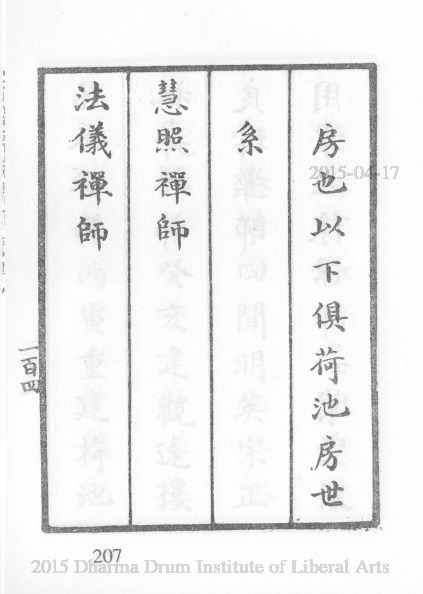 房也以下俱荷池房世
系
慧照禪師
法儀禪師
一百四
207
2015-04-17
2015 Dharma Drum Institute of Liberal Arts